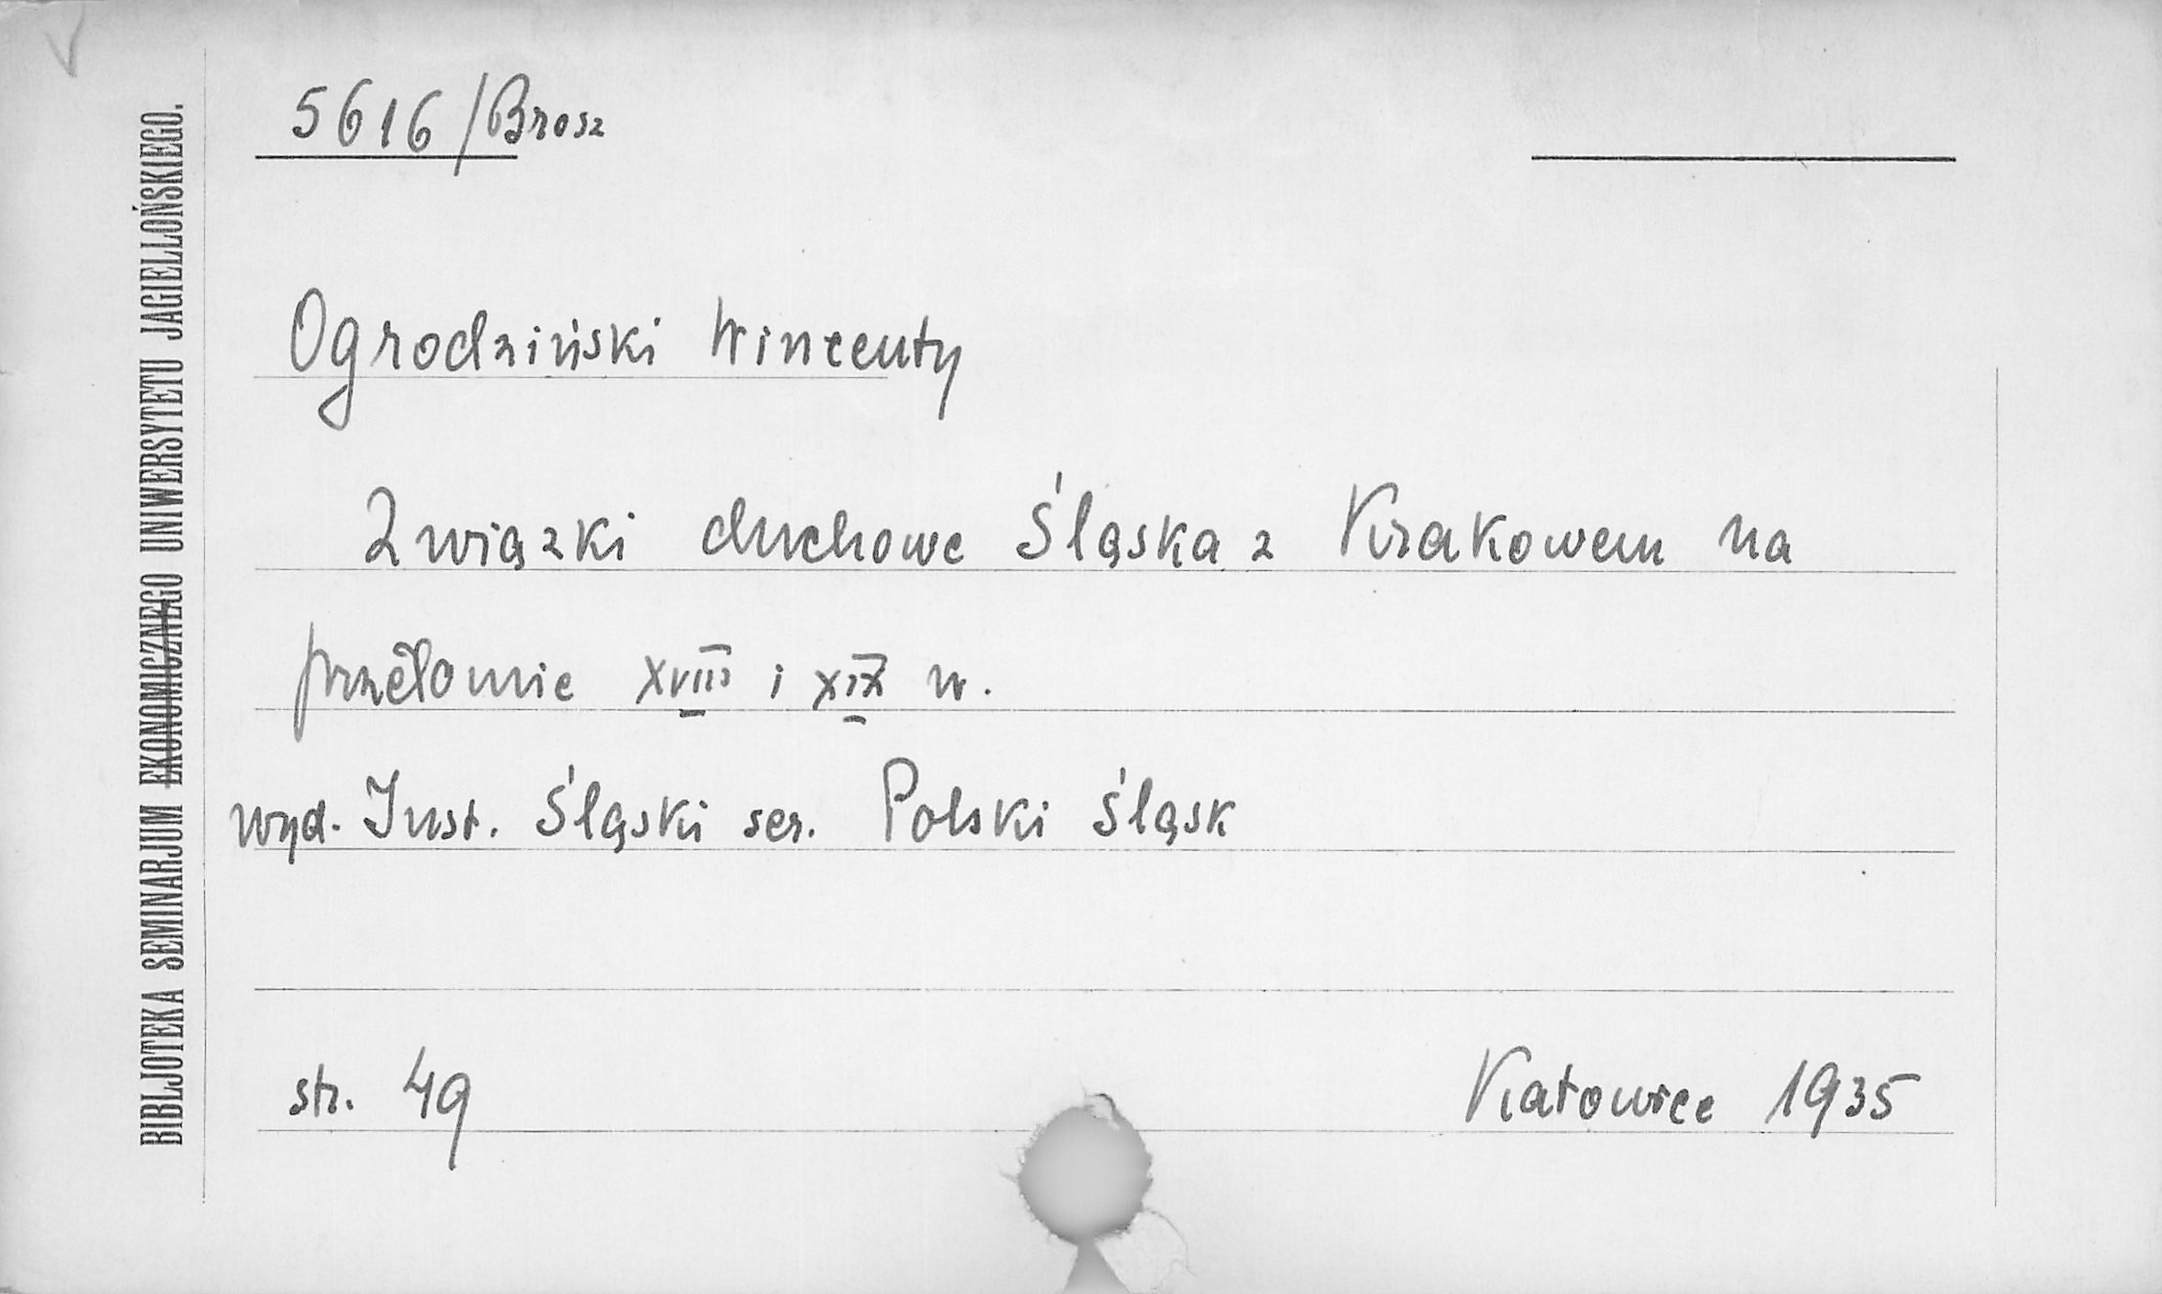 5616/Brosz
Ogrodziński Wincenty
Związki duchowe Śląska z Krakowem na
przełomie XVIII i XIX w.
wyd. Inst. Śląski ser. Polski Śląsk
str. 49
Katowice 1935
BIBLJOTEKA SEMINARJUM EKONOMICZNEGO UNIWERSYTETU JAGIELLOŃSKIEGO.